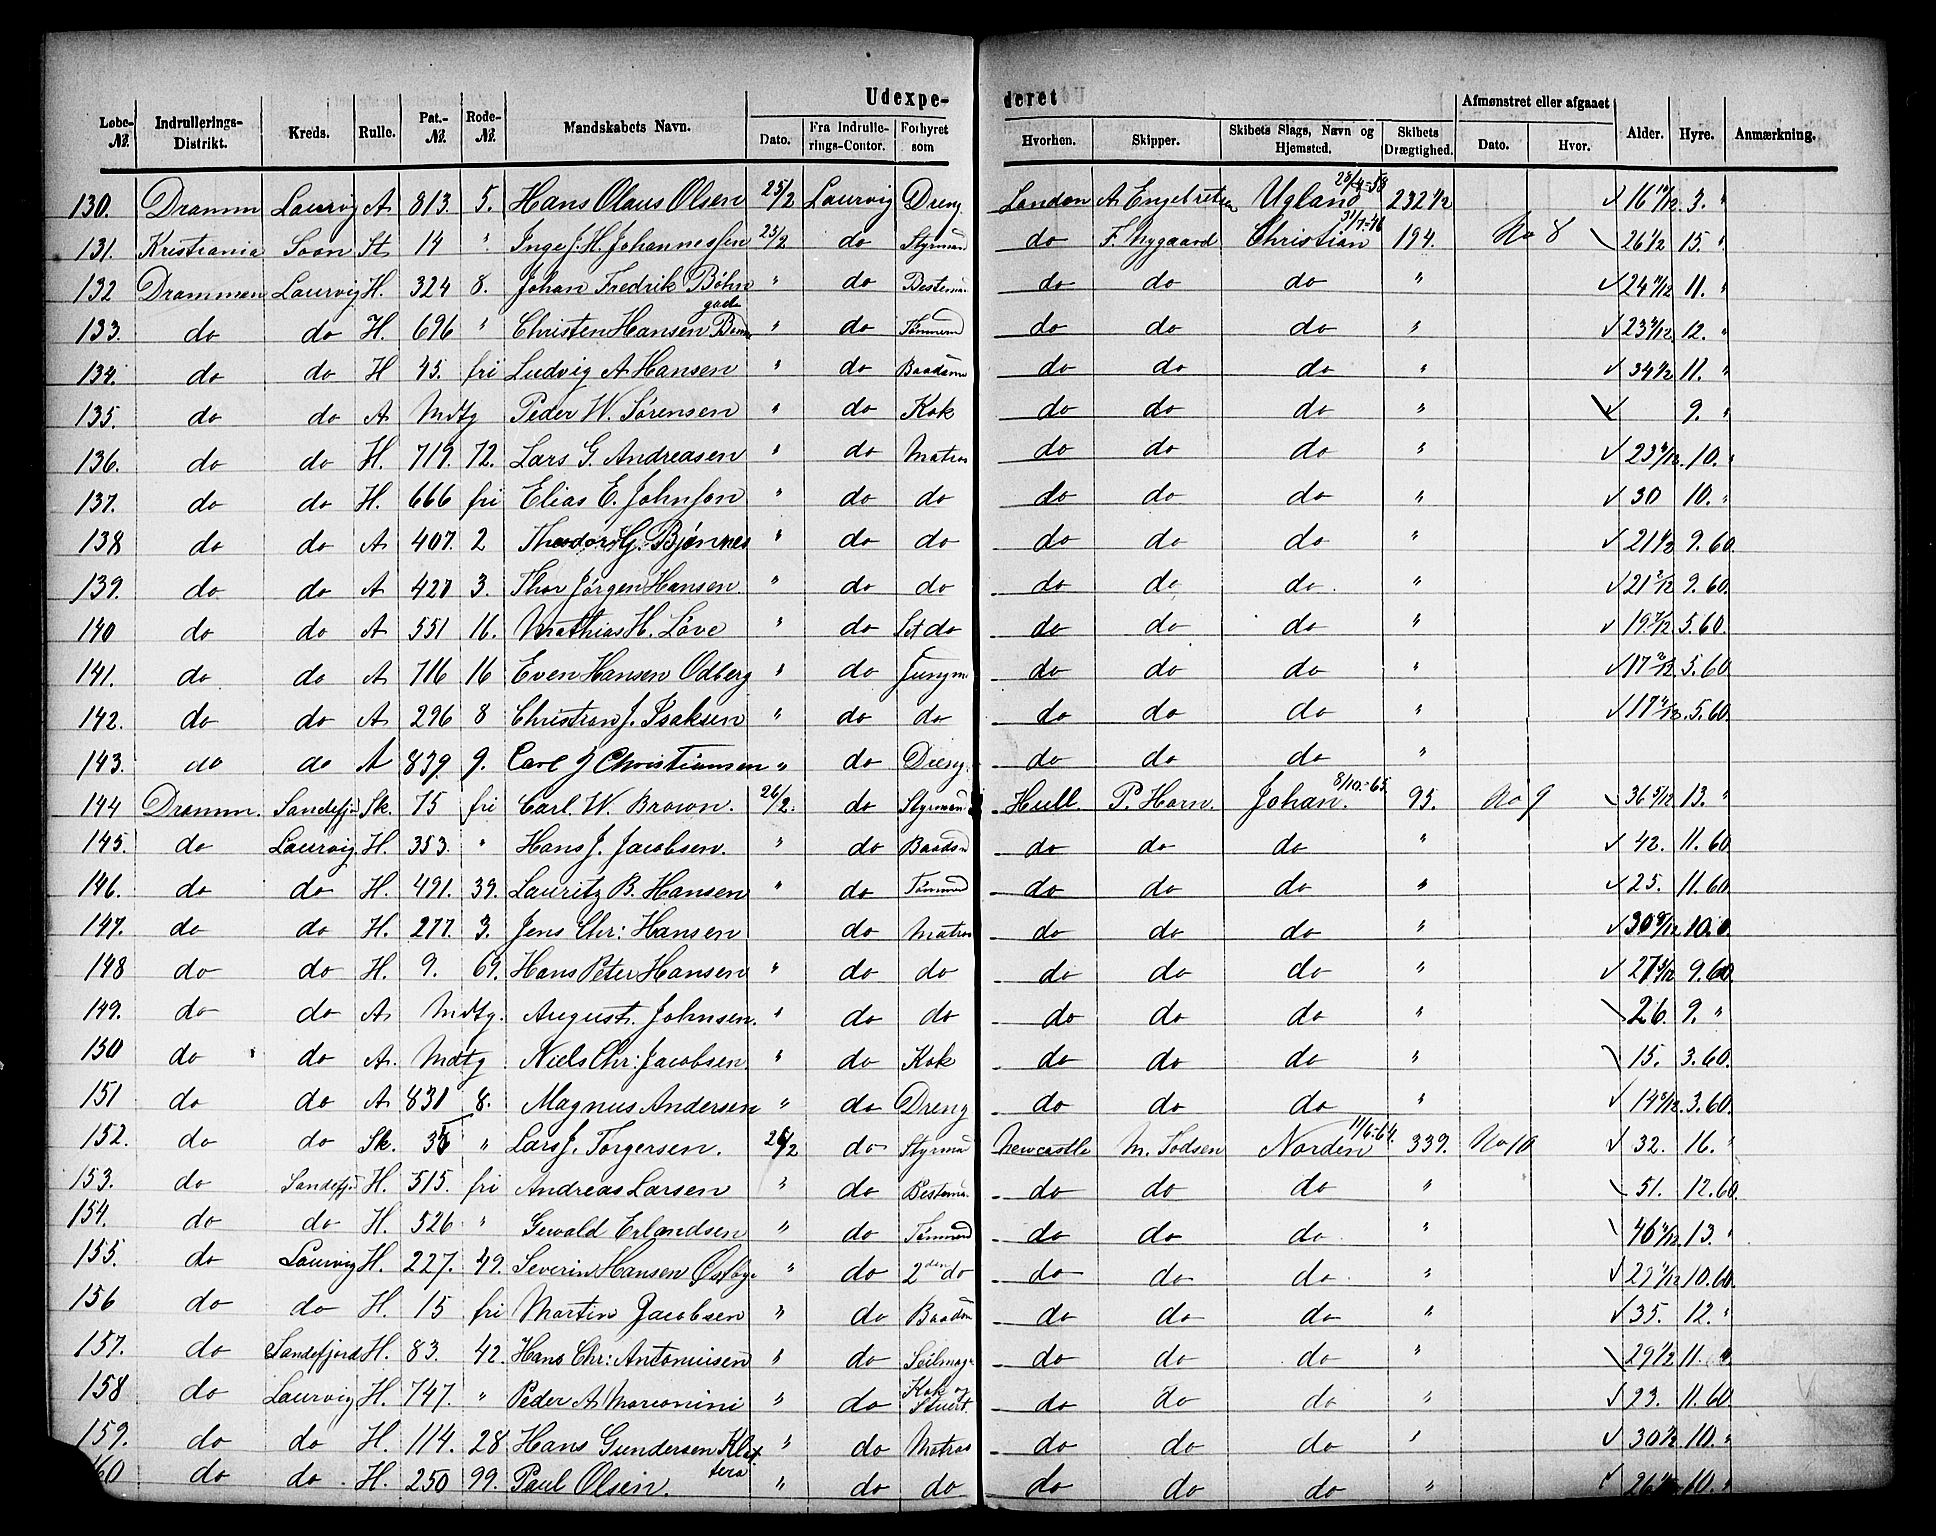 Udexpe- deret
Løbe-№. Indrullerings-Distrikt. Kreds. Rulle. Pat.-№. Rode-№. Mandskabets Navn. Dato. Fra Indrulle-rings-Contor. Forhyret som Hvorhen. Skipper. Skibets Slags, Navn og Hjemsted. Skibets Drægtighed. Afmønstret eller afgaaet Dato. Hvor. Alder. Hyre. Anmærkning.
130. Dramm Laurvig A 813. 5. Hans Olaus Olsen 25/2 Laurvig Dreng London A. Engebretsen Ugland 232 1/2 ✓ 16 3. "
131. Kristiania Soon St 14 " Inge J. H. Johannessen 23/2 do Styrman do F. Nygaard Christian 31/7-46 194. No 8 26 1/2 15. "
132 Drammen Laurvig H. 324 8. Johan Fredrik Bøhn " do Bestema. do do do " ✓ 24 11. "
133. do do H. 696 " Christen Hansen " do Tømmerm do do do " ✓ 23 12. "
134. do do H 45. fri Ludvig A Hansen " do Baadsm do do do " ✓ 34 1/2 11. "
135. do do A Mdtg Peder W. Sørensen " do Kok do do do " ✓ 9. "
136. do do H. 719. 72. Lars G. Andreasen " do Matros do do do " ✓ 23 10. "
137. do do H. 666 fri Elias E. Johnson " do do do do do " ✓ 30 10. "
138 do do A 407. 2 Theodor G. Bjønnes " do do do do do " ✓ 21 1/2 9.60.
139. do do A 427 3. Thor Jørgen Hansen. " do do do do do " ✓ 21 2/12 9.60.
140 do do A 551 16. Mathias H. Løve " do Let do do do do " ✓ 19 5.60.
141. do do A 716 16 Even Hansen Odberg " do Jungm do do do " ✓ 17 5.60
142. do do A 296 8 Christian J. Isaksen " do do do do do " ✓ 17 5.60.
143. do do A 839 9. Carl J Christiansen " do Dreng. do do do "
144 Dramm. Sandefj Sk. 75 fri Carl. W. Brown. 26/2. do Styrman Hull. P. Horn. Johan. 8/10.-65 95. No 9 36 5/12 13. "
145. do Laurvig H. 353. " Hans J. Jacobsen. " do Baadsm do do do " ✓ 42. 11.60
146. do do H. 491. 39. Lauritz B. Hansen " do Tømmerm do do do " ✓ 25. 11.60
147. do do H. 277. 3. Jens Chr: Hansen do Matros do do do " ✓ 30 10.
148 do do H. 9. 69. Hans Peter Hansen " do do do do do " ✓ 27 9.60
149. do do A Mdtg. August. Johnsen. " do do do do do " 26. 9. "
150 do do A. Mdtg Niels Chr: Jacobsen " do Kok do do do " 15. 3.60.
151 do do A 831 8. Magnus Andersen " do Dreng do do do " ✓ 14 3.60.
152. do do Sk. 35 " Lars J. Torgersen. 26/2 do Styrma Newcastle M. Sodsen Norden 11/6-64. 339. No 10 ✓ 32. 16. "
153. do Sandefj H. 515. fri Andreas Larsen " do Bestema. do do do " 51. 12.60.
154. do do H. 526 " Gewald Erlandsen " do Tømmerm do do do " 46 13. "
155. do Laurvig H. 227. 49. Severin Hansen " do 2den do do do do " ✓ 29 10.60
156 do do H. 15 fri Martin Jacobsen " do Baadsm do do do " ✓ 35. 12. "
157. do Sandefjord H. 83. 42. Hans Chr: Antoniusen " do Seilmag do do do " 29 1/2 11.
158 do Laurvig H. 747. " Peder A. " do Kok og Stuert. do do do " ✓ 23. 11.60
159. do do H. 114. 28 Hans Gundersen " do Matros do do do " ✓ 30 1/2 10. "
160 do do H. 250 99. Paul Olsen. " do do do do do " ✓ 26 10. "